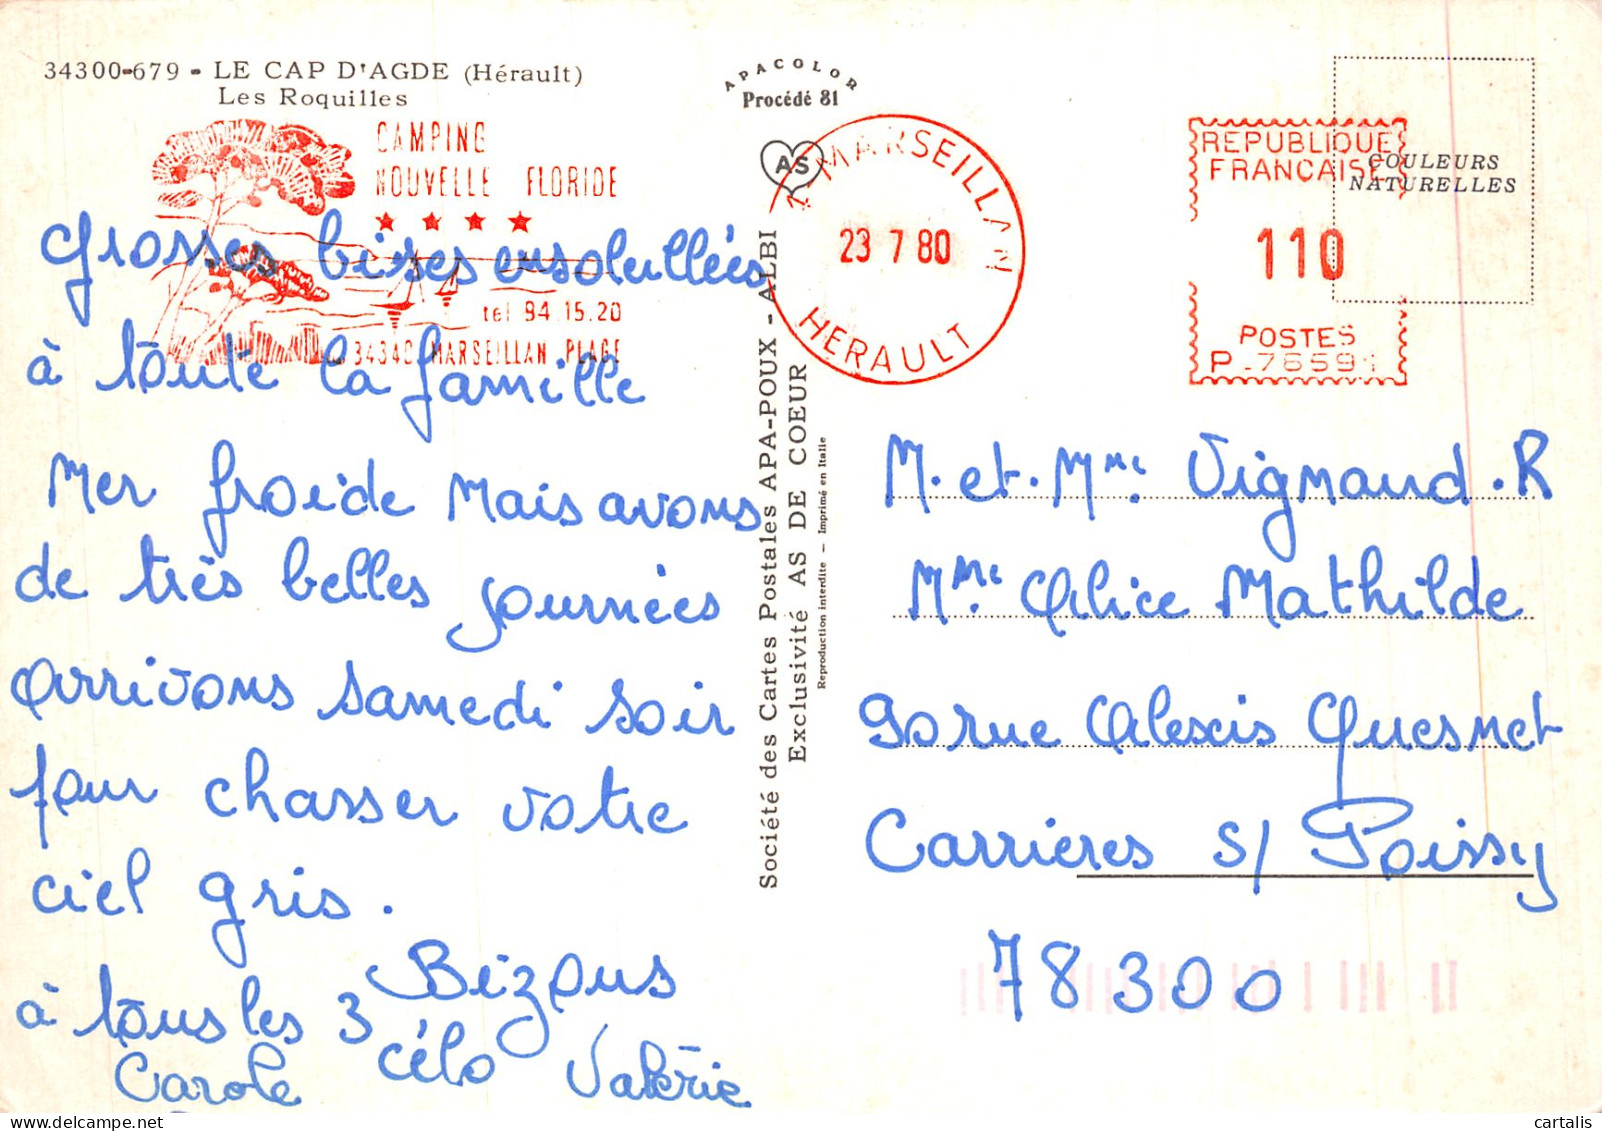 34300-679 - LE CAP D'AGDE (Hérault)
Les Roquilles
CAMPING
NOUVELLE FLORIDE
tel 94.15.20
34340 MARSEILLAN PLAGE
Grosses bises ensoleillées
à toute la famille
Mer froide Mais avons
de très belles journées
Arrivons samedi soir
pour chasser votre
ciel gris.
Bizous
à tous les 3
Carole Célo Valérie
APACOLOR
Procédé 81
AS
Société des Cartes Postales APA-POUX - ALBI
Exclusivité AS DE COEUR
Reproduction interdite - Imprimé en Italie
MARSEILLAN
23 7 80
HERAULT
REPUBLIQUE
FRANCAISE
110
POSTES
P.76591
COULEURS
NATURELLES
M. et Mme Vignaud. R
Mme Alice Mathilde
90 rue Alexis Quesnet
Carrieres s/ Poissy
78300
cartalis